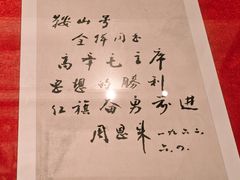 鞍山号
全体同志
高举毛主席
思想的胜利
红旗奋勇前进
周恩来 一九六六、
六、四、